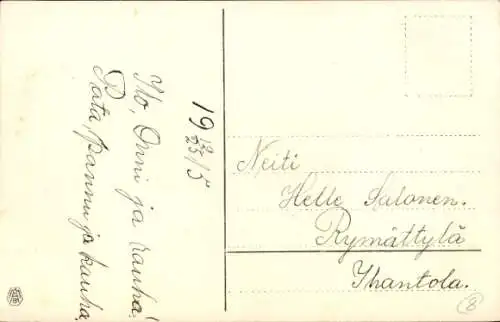 19 12/25 15
Ilo, Onni ja rauha!
Pata, pannu ja kauha.
Neiti
Helle Salonen.
Rymättylä
Ihantola.
8